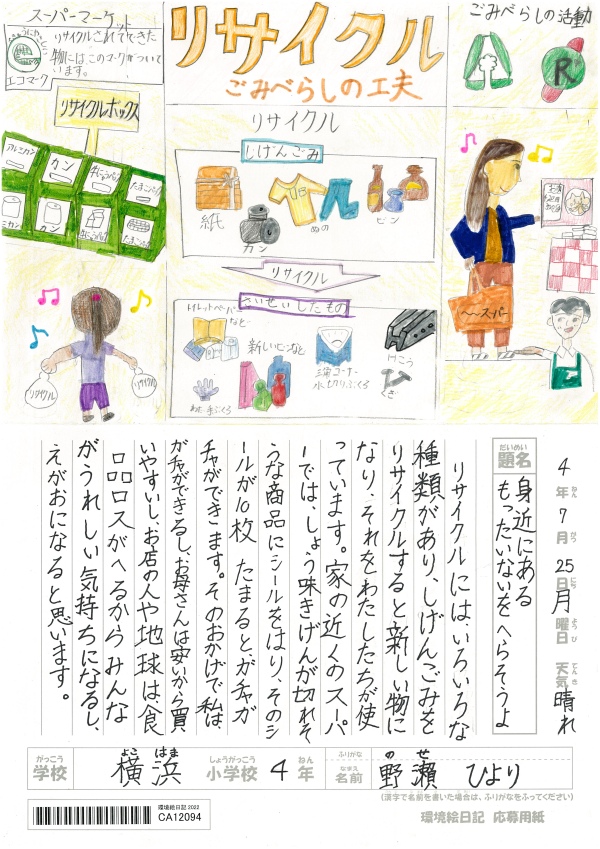 スーパーマーケット
リサイクルされてできた
物には、このマークがついて
います。
エコマーク
リサイクル
ごみべらしの工夫
ごみべらしの活動
R
リサイクルボックス
アルミカン
カン
牛にゅうパック
たまごパック
リサイクル
リサイクル
リサイクル
しげんごみ
紙
カン
ぬの
ビン
リサイクル
さいせいしたもの
トイレットペーパー
など
新しいビンなど
三角コーナー
水切りぶくろ
けこう
くぎ
〜〜スーパー
4年7月25日月曜日 天気晴れ
ねん
がつ
にち
ようび
てんき
だいめい
題名
身近にある
もったいないをへらそうよ
リサイクルには、いろいろな
種類があり、しげんごみを
リサイクルすると新しい物に
なり、それをわたしたちが使
っています。家の近くのスーパ
ーでは、しょう味きげんが切れそ
うな商品にシールをはり、そのシ
ールが10枚たまるとガチャガ
チャができます。そのおかげで私は、
ガチャができるし、お母さんは安いから買
いやすいし、お店の人や地球は、食
品ロスがへるからみんな
がうれしい気持ちになるし、
えがおになると思います。
がっこう
学校
よこ はま
横浜
しょうがっこう
小学校
4
ねん
年
ふりがな
なまえ
名前
の せ
野瀬 ひより
(漢字で名前を書いた場合は、ふりがなをふってください)
環境絵日記 2022
CA12094
環境絵日記 応募用紙